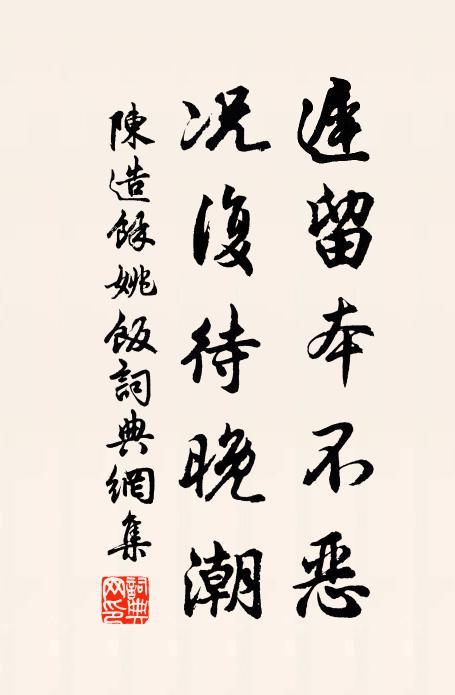 遲留本不恶
况復待晚潮
陳造餘姚飯詞典網集
詞典网印